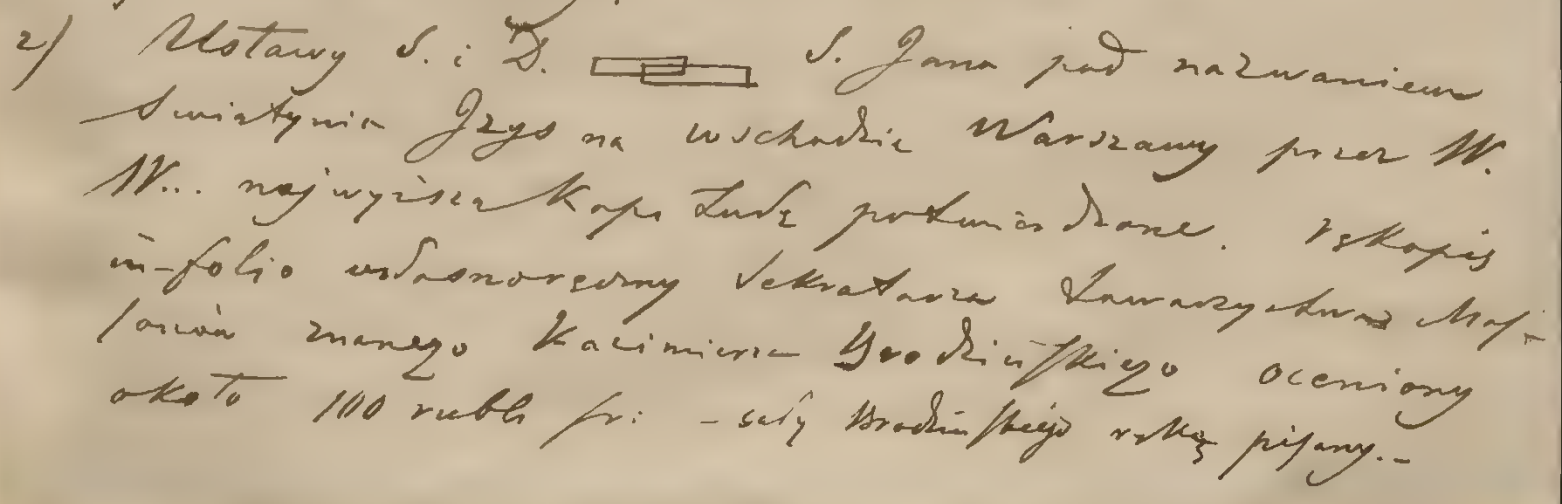 2) Ustawy S. i D. S. Jana pod nazwaniem
Swiątynia Izys na wschodzie Warszawy przez W.
W... najwyższa Kapi tułę potwierdzone. rękopis
in-folio własnoręczny Sekretarza Towarzystwa Maś-
sonów znanego Kazimierza Brodzińskiego oceniony
około 100 rubli sr: – cały Brodzińskiego ręką pisany. –